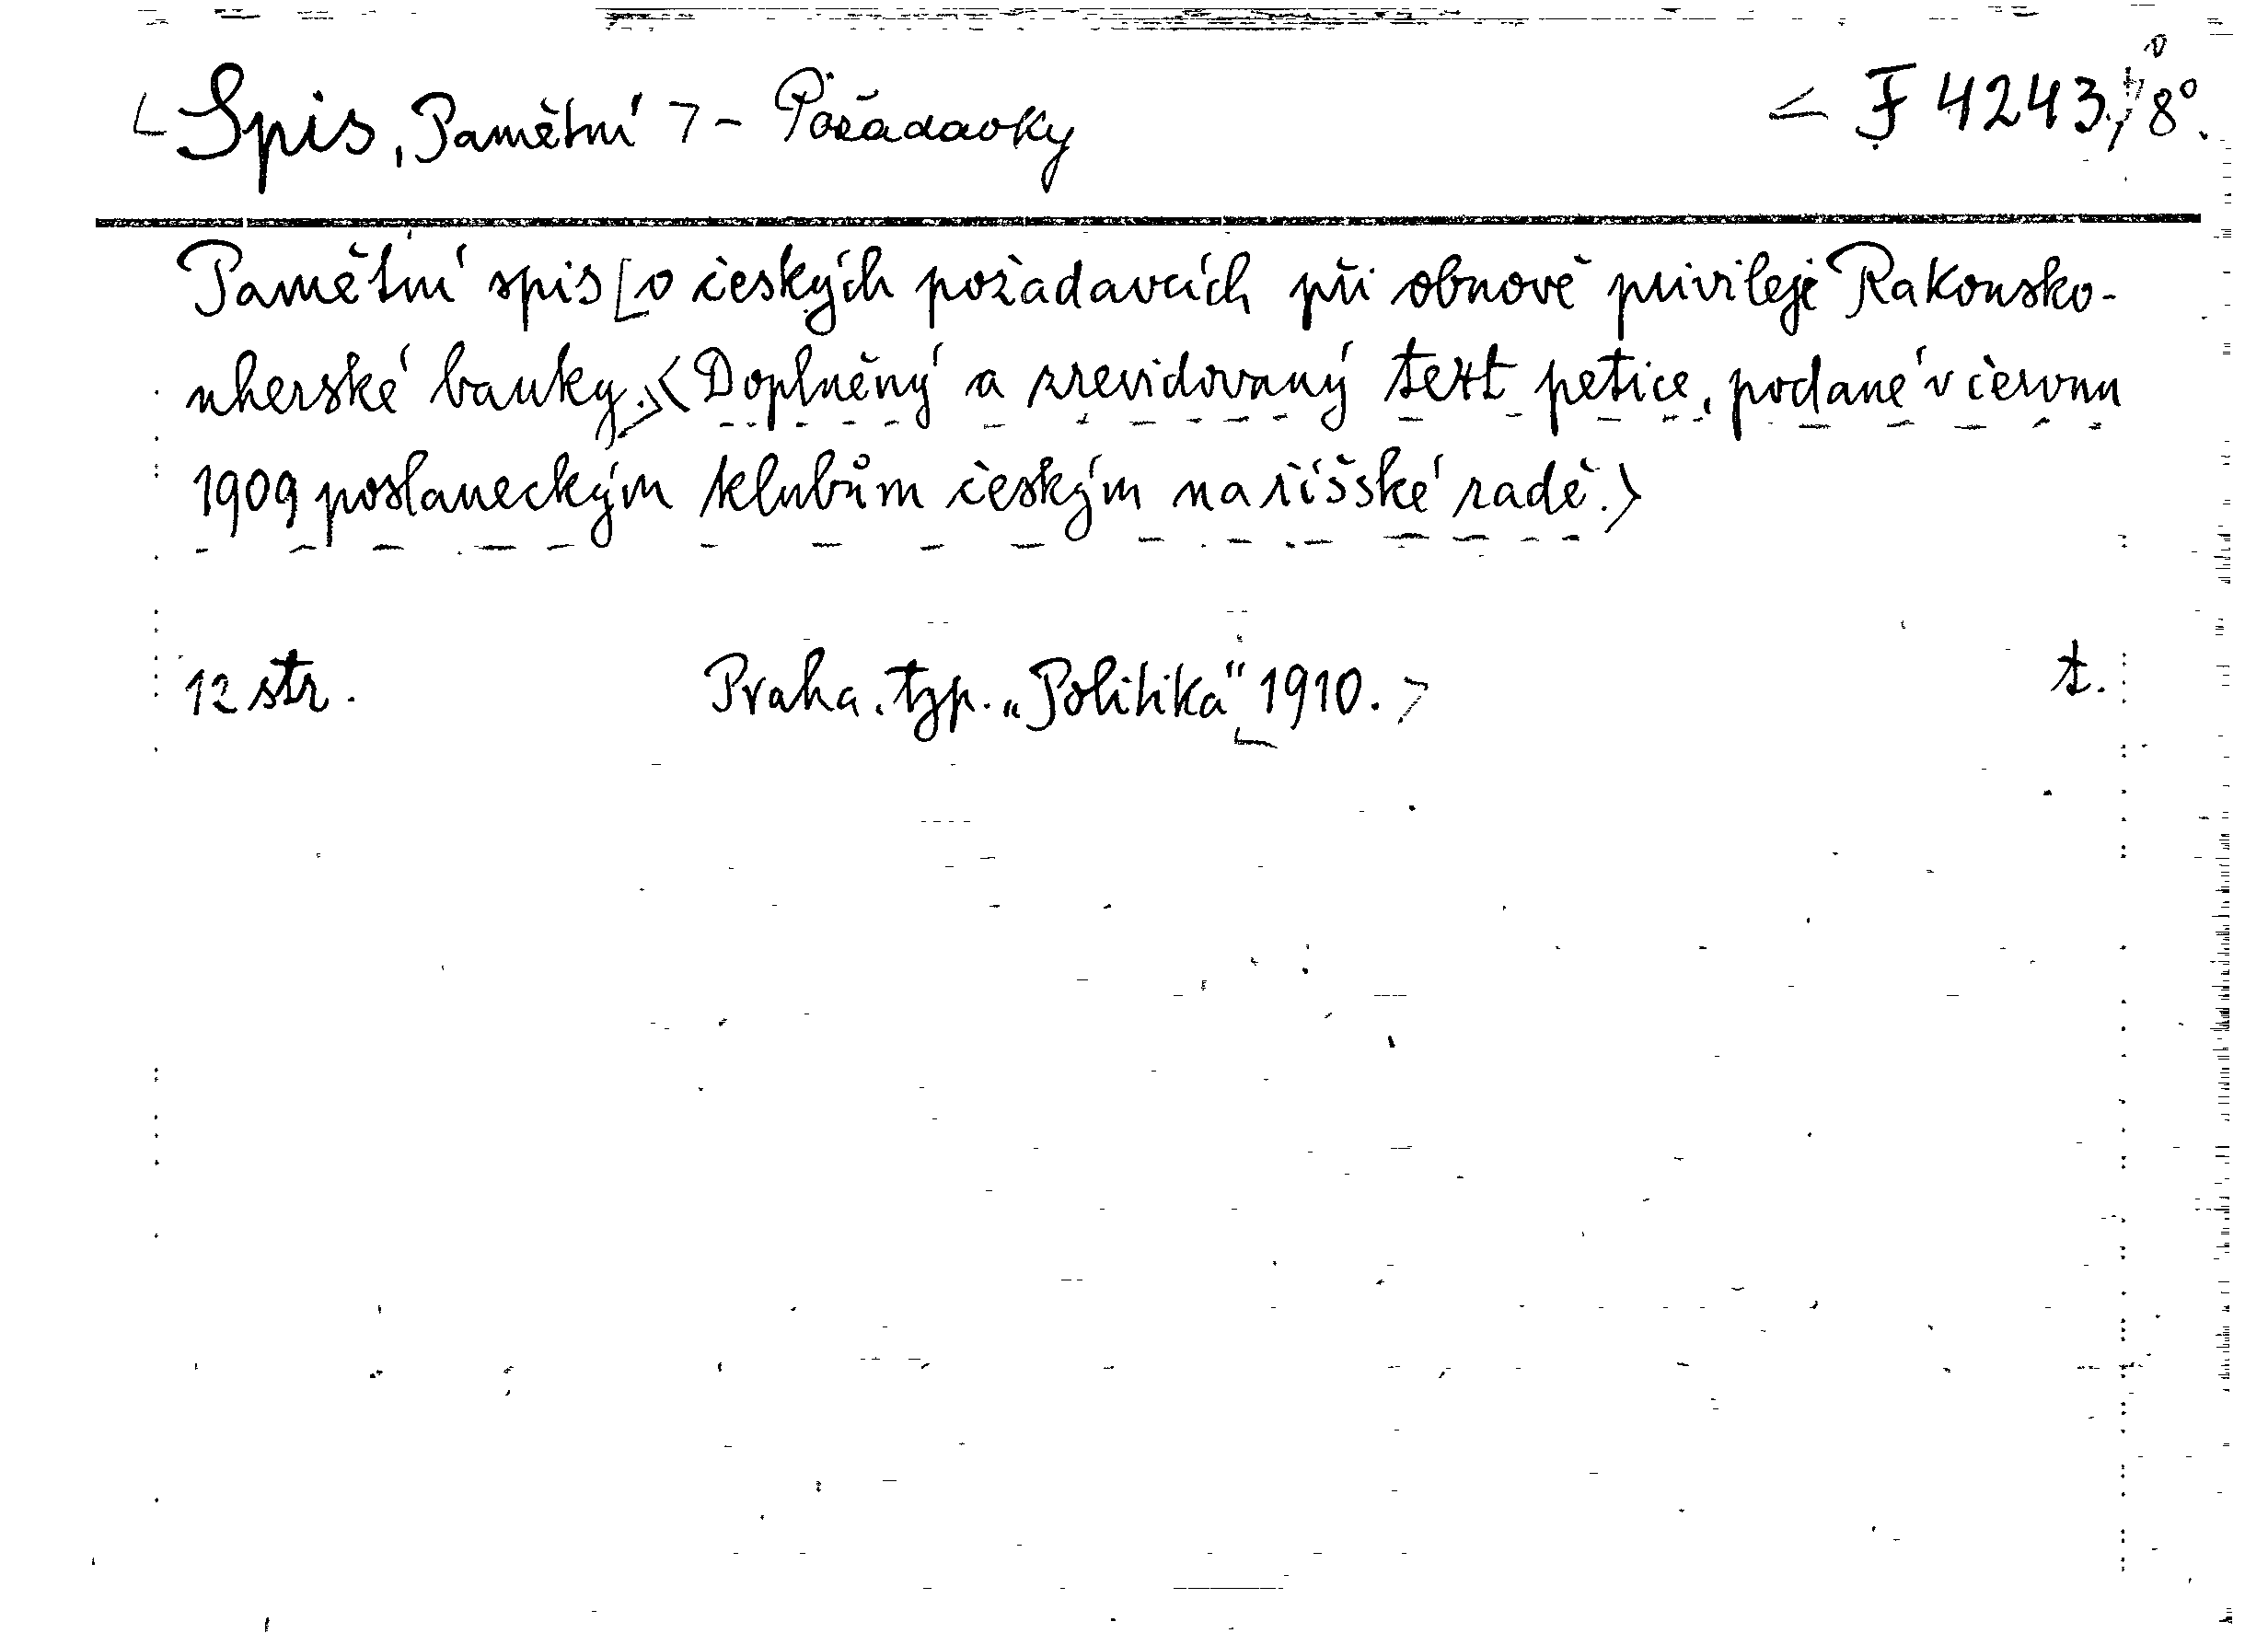 Spis, Pamětní - Požadavky F 4243./8°.
Pamětní spis [o českých požadavcích při obnově privileje Rakousko-
uherské banky.> <Doplněný a zrevidovaný text petice, podané v červnu
1909 poslaneckým klubům českým na říšské radě.>
12 str. Praha. typ. „Politika" 1910. t.